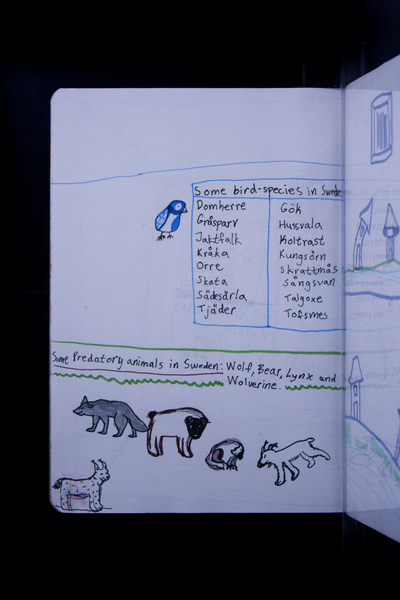 Some bird-species in Swede
Domherre
Gråsparv
Jaktfalk
Kråka
Orre
Skata
Sädesärla
Tjäder
Gök
Husvala
Koltrast
Kungsörn
Skrattmås
Sångsvan
Talgoxe
Tofsmes
Some Predatory animals in Sweden: Wolf, Bear, Lynx and
Wolverine.